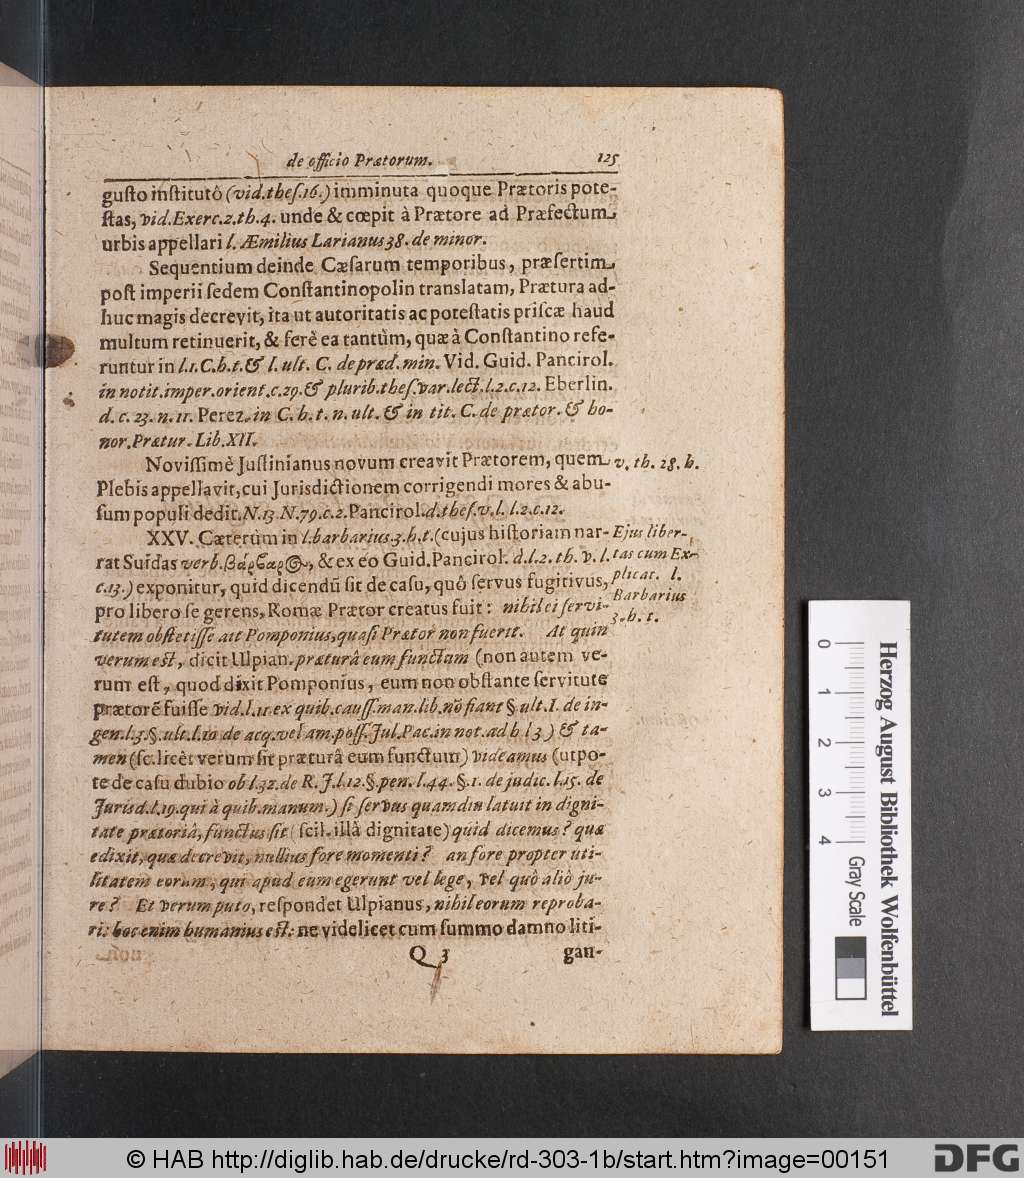 de officio Prætorum. 125
gusto institutô (vid.thes.16.) imminuta quoque Prætoris pote-
stas, vid.Exerc.2.th.4. unde & cœpit à Prætore ad Præfectum
urbis appellari l. Æmilius Larianus 38. de minor.
Sequentium deinde Cæsarum temporibus, præsertim
post imperii sedem Constantinopolin translatam, Prætura ad-
huc magis decrevit, ita ut autoritatis ac potestatis priscæ haud
multum retinuerit, & ferè ea tantùm, quæ à Constantino refe-
runtur in l.1.C.h.t.& l. ult. C. de præd. min. Vid. Guid. Pancirol.
in notit.imper.orient.c.29.& plurib.thes.var.lect.l.2.c.12. Eberlin.
d. c. 23. n. 11. Perez. in C. h. t. n. ult. & in tit. C. de prætor. & ho-
nor. Prætur. Lib. XII.
Novissimè Justinianus novum creavit Prætorem, quem
v. th. 28. h.
Plebis appellavit, cui Jurisdictionem corrigendi mores & abu-
sum populi dedit. N.13. N.79.c.2. Pancirol. d.thes.v.l. l.2.c.12.
XXV. Cæterum in l.barbarius.3.h.t. (cujus historiam nar-
rat Suidas verb. βάρβαρ@, & ex eo Guid. Pancirol. d.l.2. th. v. l.
c.13.) exponitur, quid dicendū sit de casu, quô servus fugitivus,
pro libero se gerens, Romæ Prætor creatus fuit: nihil ei servi-
tutem obstetisse ait Pomponius, quasi Prætor non fuerit. At quin
verum est, dicit Ulpian. præturâ eum functam (non autem ve-
rum est, quod dixit Pomponius, eum non obstante servitute
prætorē fuisse vid.l.11.ex quib.causs.man.lib.nō fiant §.ult.I. de in-
gen.l.3.§.ult.l.10 de acq.vel am.poss. Jul.Pac.in not.ad h l 3.) & ta-
men (sc. licèt verum sit præturâ eum functum) videamus (utpo-
te de casu dubio ob l.32.de R. J.l.12.§.pen. l.44. §.1. de judic. l.15. de
Jurisd.l.19.qui à quib.manum.) si servus quamdiu latuit in digni-
tate prætoriâ, functus sit (scil. illâ dignitate) quid dicemus? quæ
edixit, quæ decrevit, nullius fore momenti? an fore propter uti-
litatem eorum, qui apud eum egerunt vel lege, vel quô aliô ju-
re? Et verum puto, respondet Ulpianus, nihil eorum reproba-
ri: hoc enim humanius est: ne videlicet cum summo damno liti-
Q 3 gan-
Ejus liber-
tas cum Ex-
plicat. l.
Barbarius
3. h. t.
0 1 2 3 4 Gray Scale
Herzog August Bibliothek Wolfenbüttel
© HAB http://diglib.hab.de/drucke/rd-303-1b/start.htm?image=00151
DFG